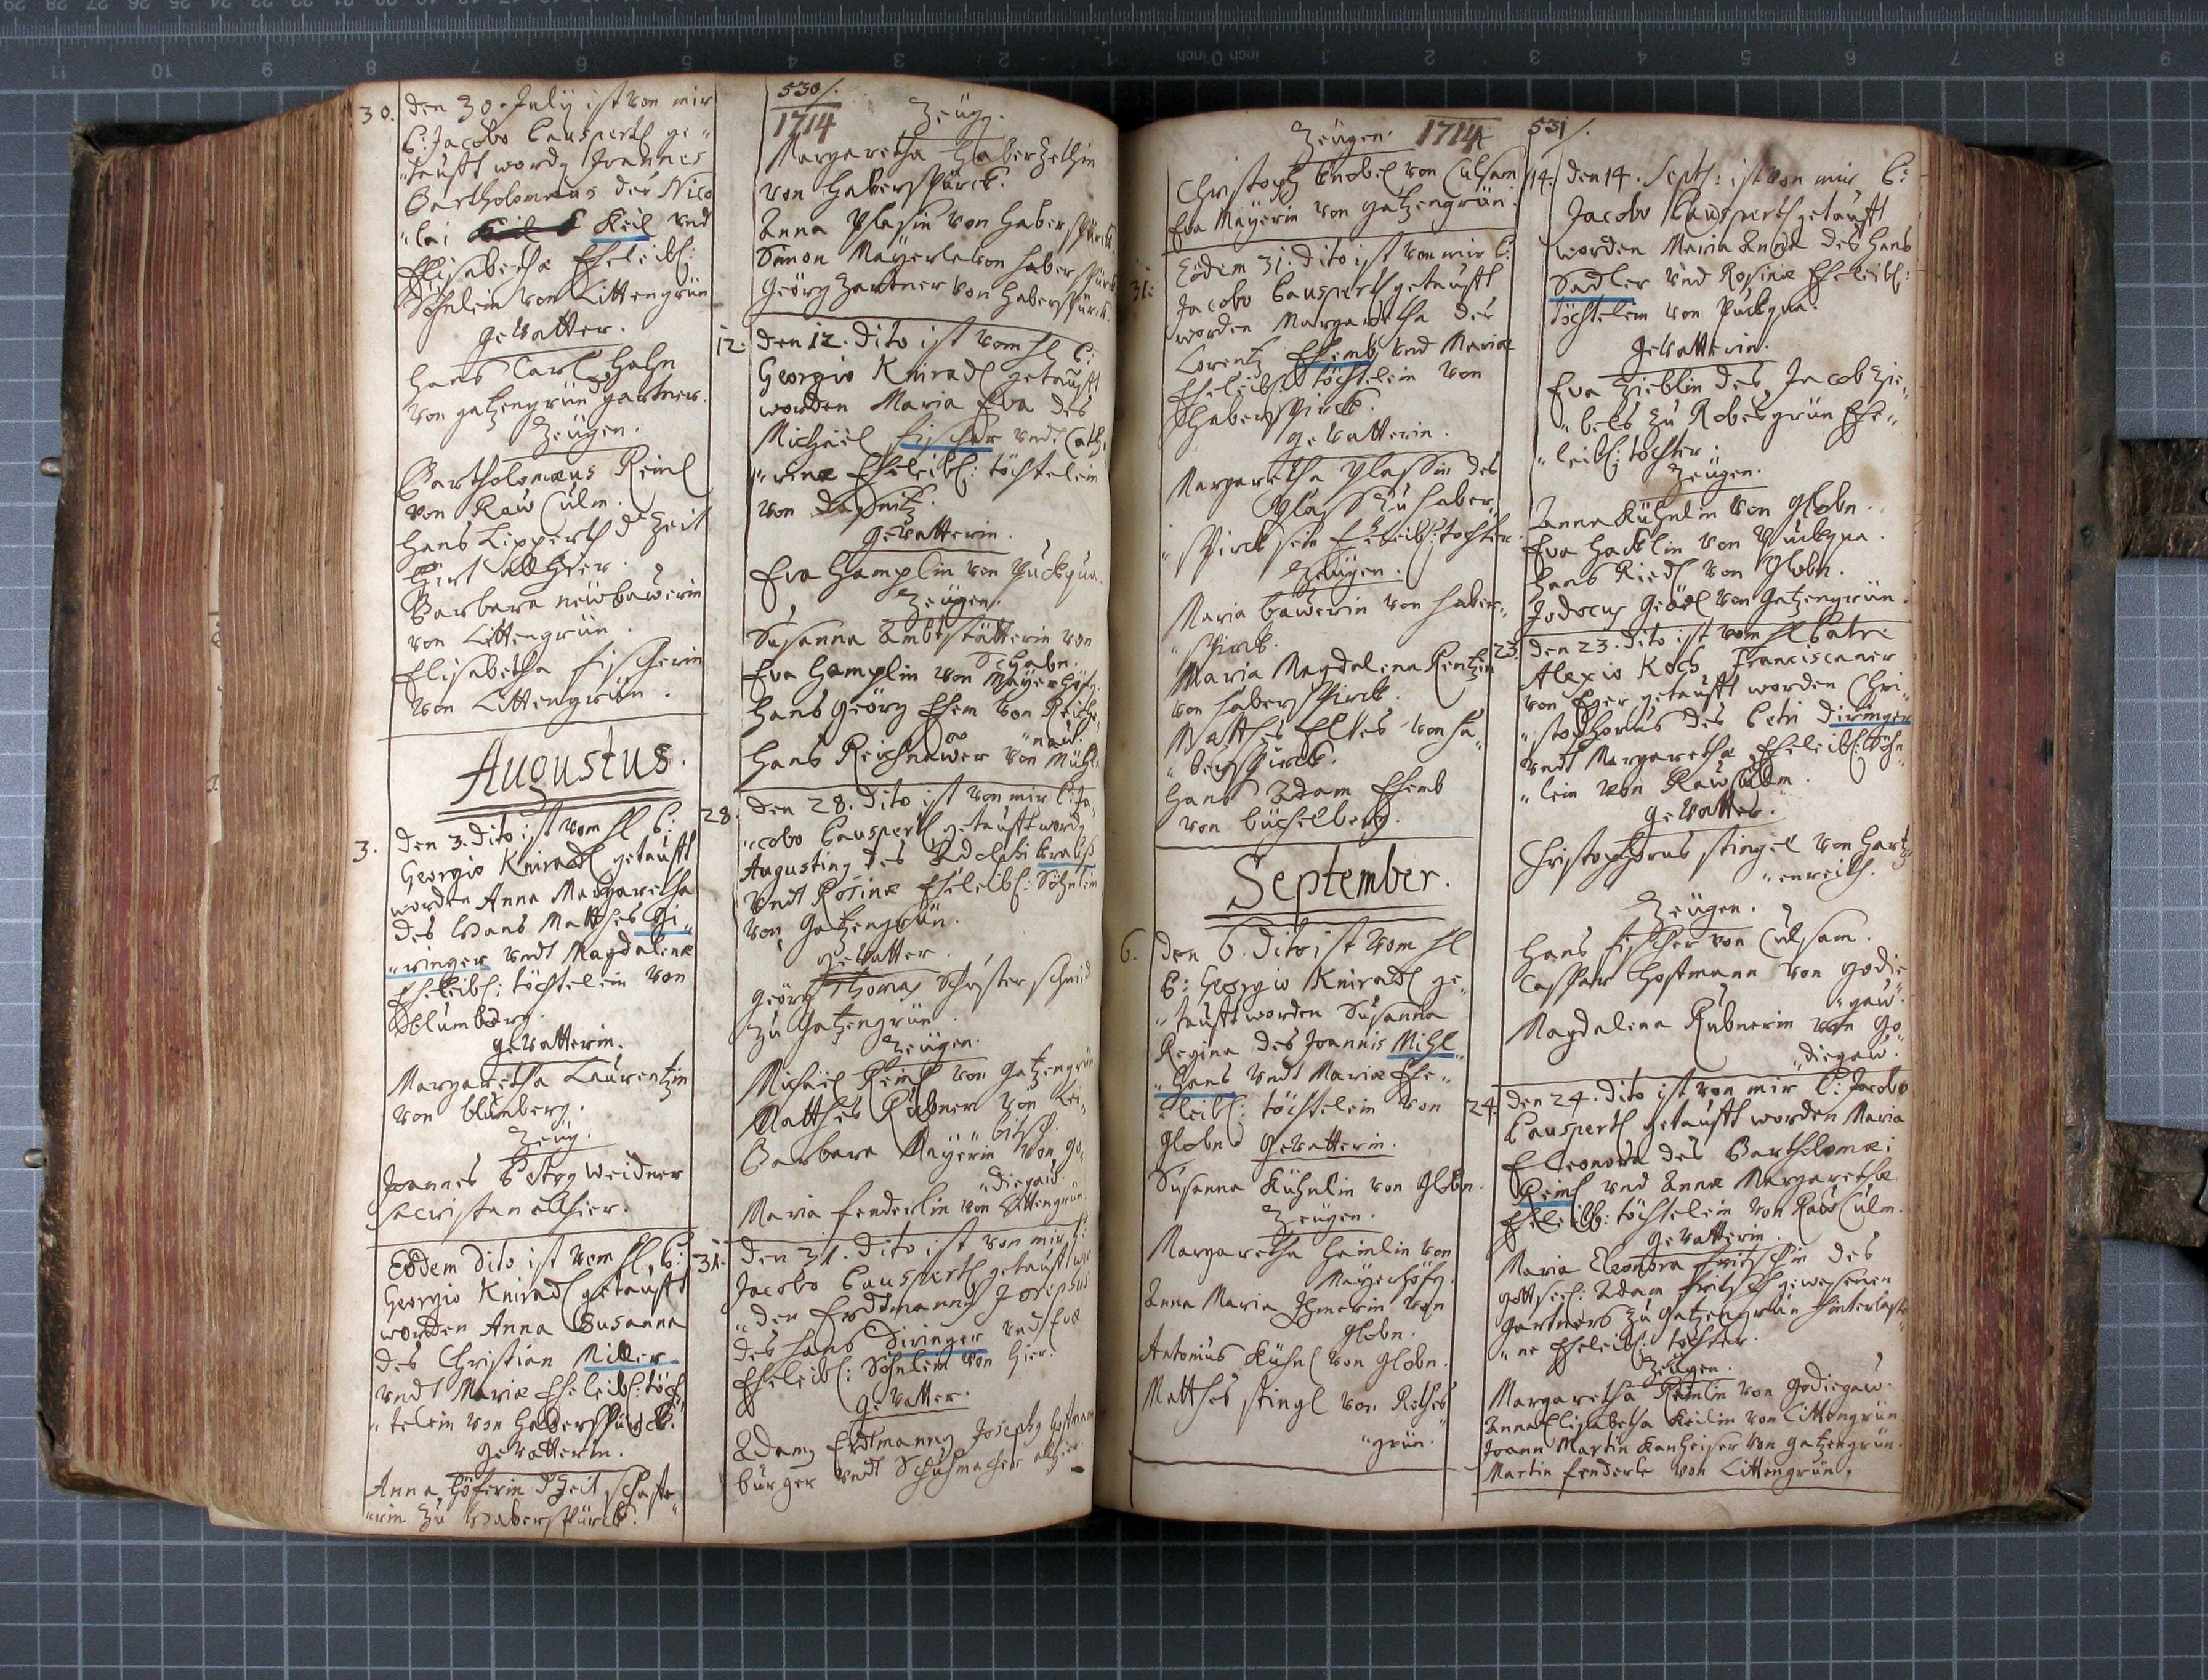 530/.
1714
30. den 30. July ist von mir
P: Jacobo Pauspertl ge„
„taufft wordn Joannes
Bartholomæus des Nico
„lai Keil vnd
Elisabetha Eheleibl:
Söhnlein von Littengrün
gevatter.
Hans Carl Hahn
von gatzengrün gartner.
Zeügen.
Bartholomæus Reinl
von Kaw Culm.
Hans Lipperth d Zeit
Hirt allhier.
Barbara newbawerin
von Littengrün.
Elisabetha fischerin
von Littengrün.
Augustus.
3. den 3. dito ist vom H P:
Georgio Kniradl getaufft
worden Anna Margaretha
des Hans Matthes Di„
„ringer vndt Magdalenæ
Eheleibl: töchtelein von
blumberg.
gevatterin.
Margaretha Laurentzin
von blumberg.
Zeüg.
Joannes Georg Weidner
sacristan allhier.
Eodem dito ist vom H P:
Georgio Kniradl getaufft
worden Anna Susanna
des Christian Miller
vndt Mariæ Eheleibl: töch
„telein von Haberspürck.
gevatterin.
Anna Höferin d Zeit schaffe
„rin zu Haberspürck.
Zeüg.
Margaretha Haberzethin
von Haberspürck.
Anna Plasin von Haberspürck.
Simon Mäyerle von Haberspürck
Geörg Zartner von Haberspürck.
12. den 12. dito ist vom H P:
Georgio Kniradl getaufft
worden Maria Eva des
Michael fischer vndt Cath„
„rinæ Eheleibl: töchtelein
von Daßnitz.
gevatterin.
Eva Hamplin von Puckqua.
Zeügen.
Susanna Ambtstätterin von
Schabn.
Eva Hamplin von Mäyerhöfn.
Hans Geörg Ehem von Reiche„
„naw.
Hans Reichnawer von Mühl„
28. den 28. dito ist von mir P: Ja„
„cobo Pauspertl getaufft wordn
Augustinus des Adolphi krauß
vndt Rosinæ Eheleibl: Söhnlein
von Gatzengrün.
gevatter.
Geörg Thomas Schuster schmid
zu Gatzengrün.
Zeügen.
Michael Reinl von Gatzengrün
Matthes Rubner von Lei„
bitsch.
Barbara Mäyerin von Go„
„diegaw.
Maria fenderlin von Littengrün.
31. den 31. dito ist von mir P:
Jacobo Pauspertl getaufft wor
„den Erdtmannus Josephus
des Hans Diringer vnd Evæ
Eheleibl: Söhnlein von hier.
gevatter.
Adamus Erdtmannus Josephus Hostmann
burger vndt Schuhmacher allhier.
1714
531/.
Zeügen.
Christoph knobel von Culsam
Eva Mäyerin von gatzengrün.
31. Eodem 31. dito ist von mir P:
Jacobo Pauspertl getaufft
worden Margaretha des
Lorentz Ehemb vnd Mariæ
Eheleibl: töchtelein von
Haberspirck.
gevatterin.
Margaretha Plassin des
Plass zu Haber„
„spirck sein Eheleibl: tochter.
Zeügen.
Maria bawerin von Haber„
„spirck.
Maria Magdalena Rentzin
von Haberspirck.
Matthes Eltes von Ha„
„berspirck.
Hans Adam Ehemb
von büchelberg.
September.
6. den 6. dito ist vom H
P: Georgio Kniradl ge„
„taufft worden Susanna
Regina des Joannis Mihl„
„Hans vndt Mariæ Ehe„
„leibl: töchtelein von
Globn. gevatterin.
Susanna Kühnlin von Globn.
Zeügen.
Margaretha Heinlin von
Mäyerhöfn.
Anna Maria Ihmerin von
Globn.
Antonius Kühnl von Globn.
Matthes stingl von Rethes
„grün.
14. den 14. Sept: ist von mir P:
Jacobo Pauspertl getaufft
worden Maria Anna des Hans
Sadler vnd Rosinæ Eheleibl:
töchtelein von Puckqua.
gevatterin.
Eva Zieblin des Jacob Zie„
„bels zu Robesgrün Ehe„
„leibl: tochter.
Zeügen.
Anna Kühnlin von Globn.
Eva Hacklin von Puckqua.
Hans Riedl von Globn.
Jodocus Geoel von Gatzengrün.
23. den 23. dito ist vom H Patre
Alexio Koch Franciscaner
von Eger getaufft worden Chri„
„stophorus des Petri Diringer
vndt Margaretha Eheleibl: Söhn
„lein von Kaw Culm.
gevatter.
Christophorus stingel von Hart
„enreith.
Zeügen.
Hans fischer von Culsam.
Casspar Hostmann von Godie
„gaw.
Magdalena Rubnerin von Go
„diegaw.
24. den 24. dito ist von mir P: Jacobo
Pauspertl getaufft worden Maria
Eleonora des Bartholomæi
Reinl vnd Annæ Margarethæ
Eheleibl: töchtelein von Kaw Culm.
gevatterin.
Maria Eleonora fritschin des
gottseel: Adam fritsch gewesenen
gartners zu gatzengrün hinterlaße
„ne Eheleibl: tochter.
Zeügen.
Margaretha Reinlin von Godiegaw.
Anna Elisabetha Keilin von Littengrün.
Joann Martin Kanheiser von gatzengrün.
Martin fenderle von Littengrün.